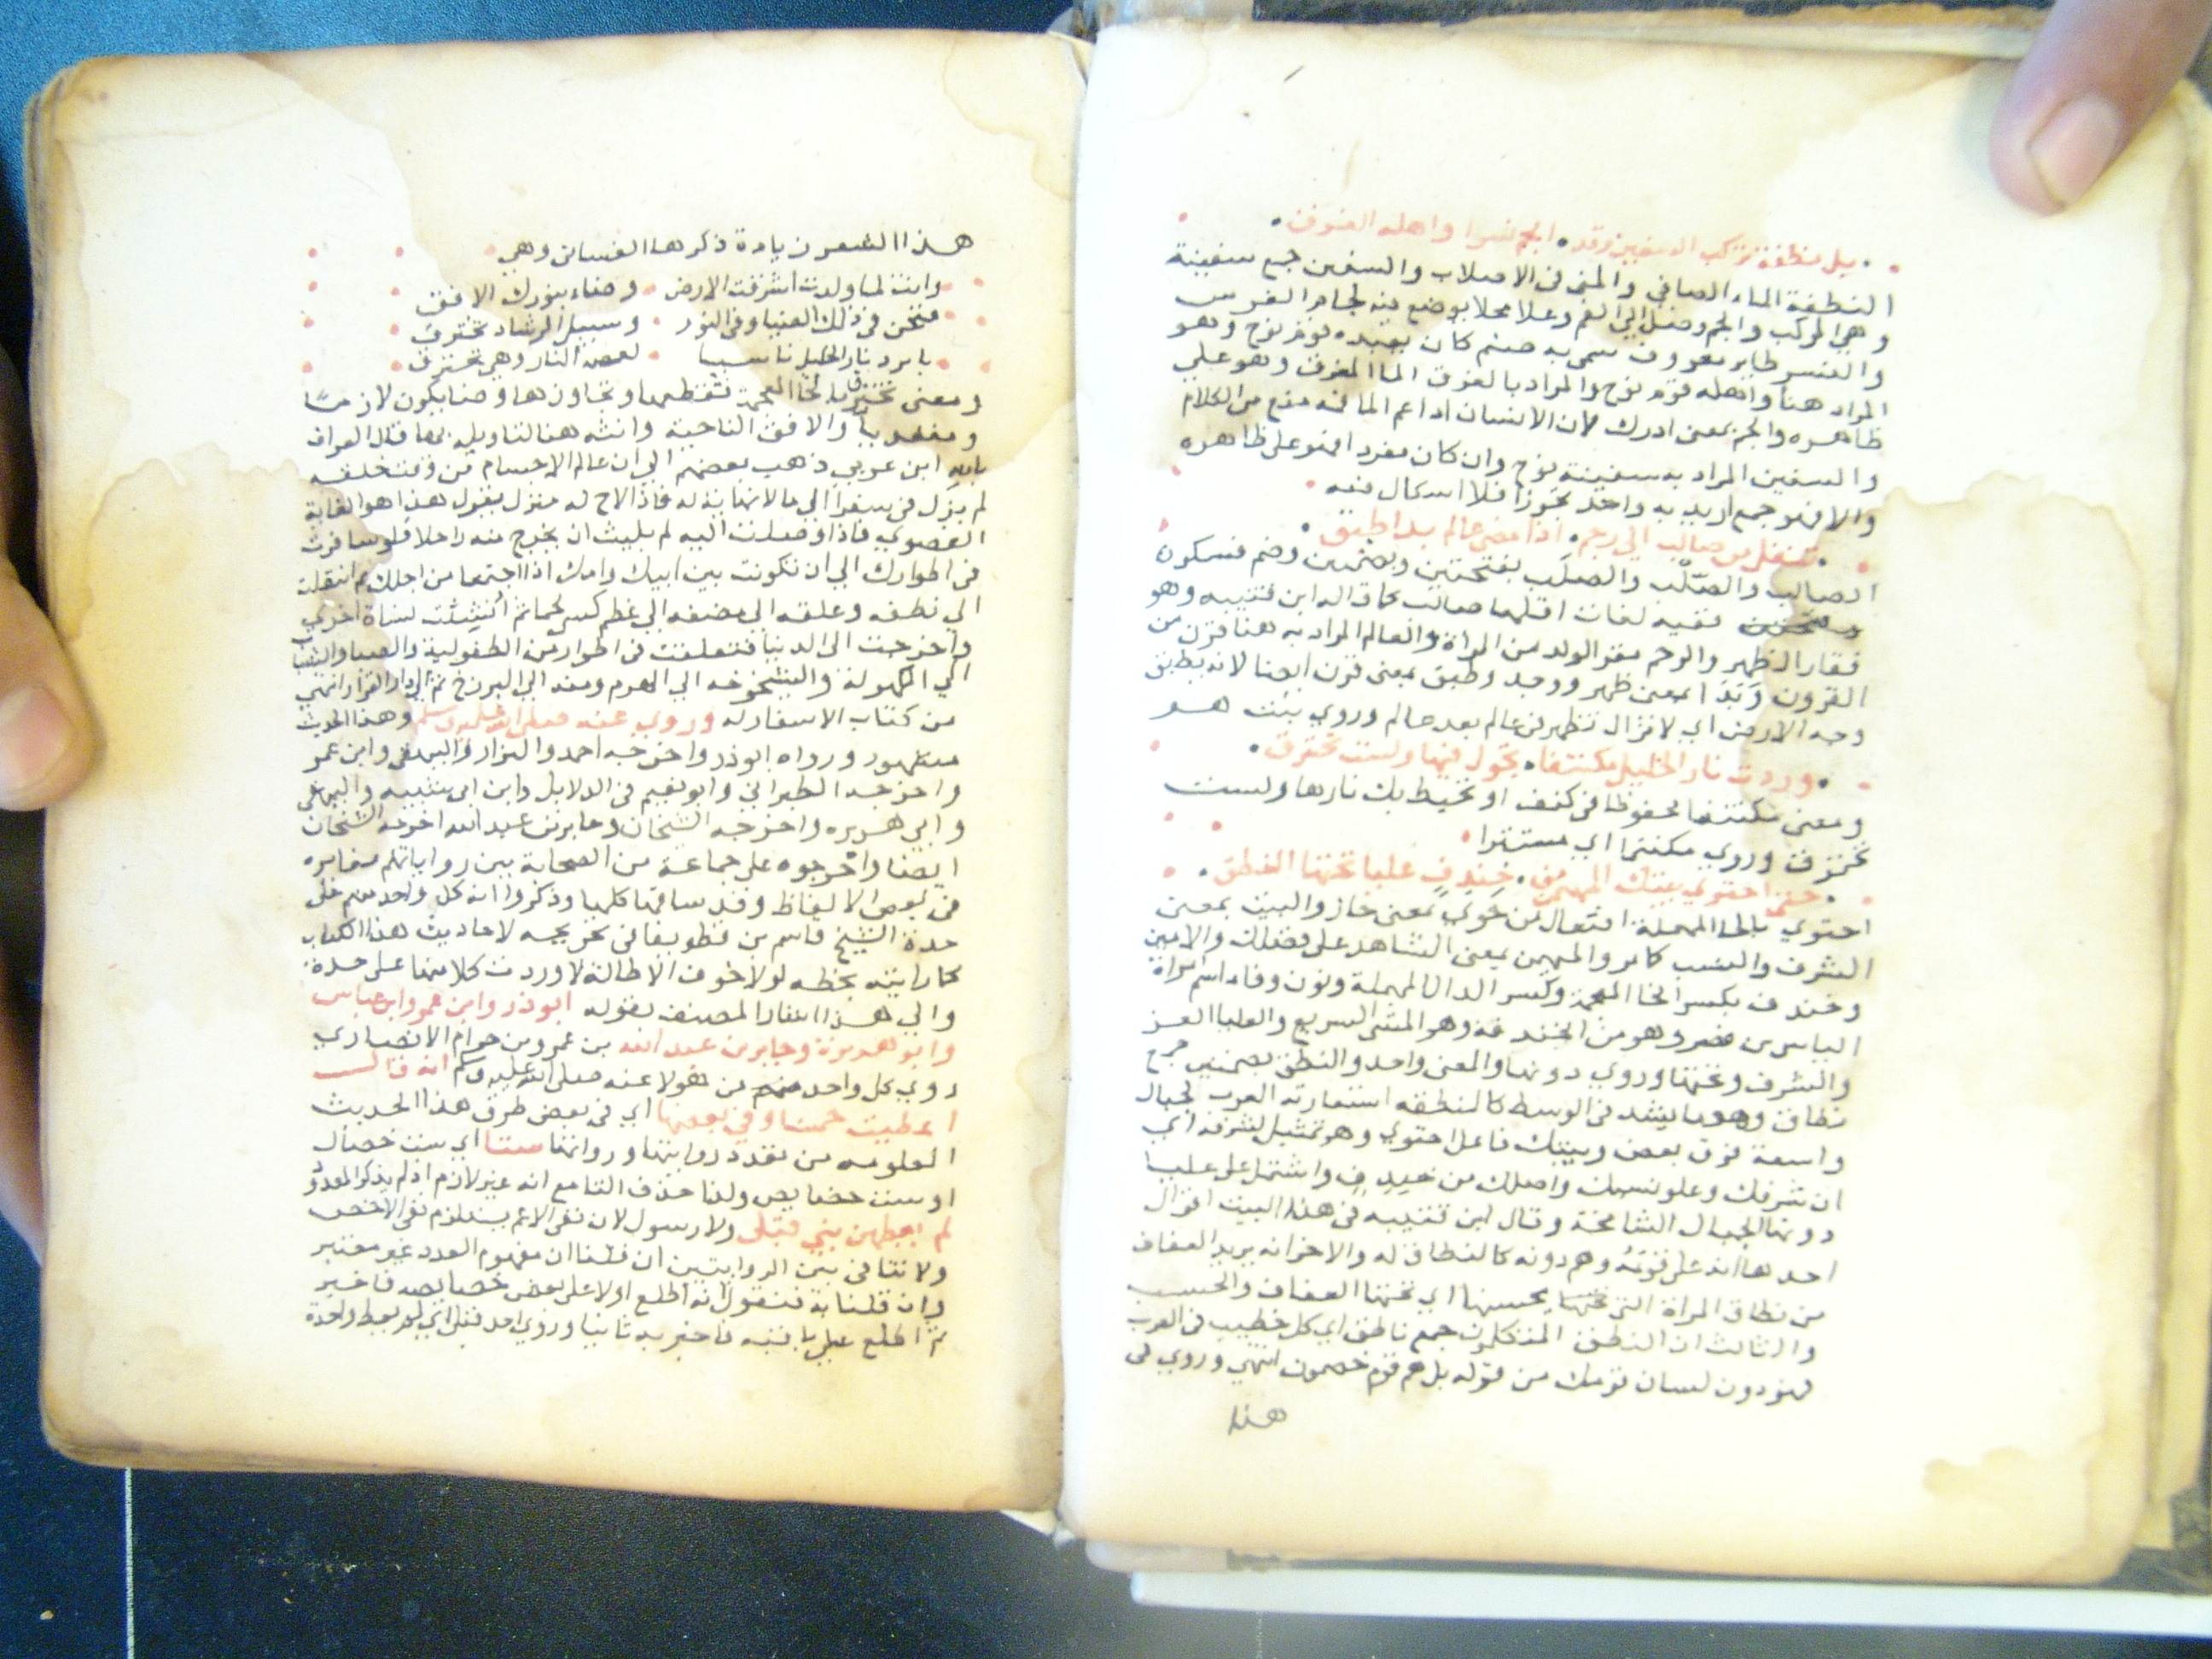 بل نطفة تركب السفين وقد الجم نسرا واهله الغرق
النطفة الماء الصافي والمني في الاصلاب والسفين جمع سفينة
وهي المركب والجم وصل الي الفم وعلا محلا يوضع فيه لجام الفرس
والنسر طاير معروف سمي به صنم كان يعبده قوم نوح وهو
المراد هنا واهله قوم نوح والمراد بالغرق الماء المغرق وهو علي
ظاهره والجم بمعني ادرك لان الانسان اذا عم الما فمه منع من الكلام
والسفين المراد به سفينة نوح وان كان مفرد افهو علي ظاهره
والا فهو جمع اريد به واحد تجوزا فلا اشكال فيه
تنقل من صالب الي رحم اذا مضي عالم بدا طبق
الصالب والصلب والصلب بفتحتين وبضمتين وضم فسكون
ففيه لغات اقلها صالب كما قاله ابن قتيبه وهو
فقار الظهر والرحم مقر الولد من المراة والعالم المراد به هنا قرن من
القرون وبدا بمعني ظهر ووجد وطبق بمعني قرن ايضا لانه يطبق
وجه الارض اي لا تزال تظهر في عالم بعد عالم وروي بيت هو
وردت نار الخليل مكتتما تجول فيها ولست تحترق
ومعني مكتنفا محفوظا في كنف او تحيط بك نارها ولست
تحترق وروي مكتتما اي مستترا
حتي احتوي بيتك المهيمن من خندف عليا تحتها النطق
احتوي بالحا المهملة افتعال من حوي بمعني حاز والبيت بمعني
الشرف والنسب كامر والمهيمن بمعني الشاهد علي فضلك والامين
وخندف بكسر الخا المعجمة وكسر الدال المهملة ونون وفاء اسم امراة
الياس بن مضر وهو من الخندفة وهو المشي السريع والعليا العز
والشرف وتحتها وروي دونها والمعني واحد والنطق بضمتين جمع
نطاق وهو ما يشد في الوسط كالمنطقه استعارته العرب لجبال
واسعة فوق بعض وبيتك فاعل احتوي وهو تمثيل لشرفه اي
ان شرفك وعلو نسبك واصلك من خندف واشتمل علي عليا
دونها الجبال الشامخة وقال ابن قتيبه في هذا البيت اقوال
احدها انه علي قومه وهم دونه كالنطاق له والاخر انه يريد العفاف
من نطاق المراة التي تحتها يحسنها اي تحتها العفاف والحسب
والثالث ان النطق المتكلمون جمع ناطق اي كل خطيب في العرب
فهو دون لسان قومك من قوله بل هم قوم خصمون انتهي وروي في
هذا
هذا الشعر زيادة ذكرها الغساني وهي
وانت لما ولدت اشرقت الارض وضاء بنورك الافق
فنحن في ذلك الضيا وفي النور وسبيل الرشاد نخترق
يا برد نار الخليل يا سببا لعصمة النار وهي تحترق
ومعني نخترق بالخا المعجمة نقطعها ونتجاوزها وضا يكون لازما
ومتعديا والافق الناحية وانثه هنا لتاويله بها قال العارف
بالله ابن عربي ذهب بعضهم الي ان عالم الاجسام من وقت خلقه
لم يزل في سفر الي ما لا نهاية له فاذا لاح له منزل يقول هذا هو الغاية
القصوي فاذا وصلت اليه لم يلبث ان يخرج منه راحلا فلو سافرت
في اطوارك الي ان تكونت بين ابيك وامك اذا اجتمعا من اجلك ثم انتقلت
الي نطفه وعلقه الي مضغه الي عظم كسي لحما ثم انشئت نشاة اخري
واخرجت الي الدنيا فتعلقت في اطوار من الطفولية والصبا والشباب
الي الكهولة والشيخوخه الي الهرم ومنه الي البرزخ ثم الي دار القرار انتهي
من كتاب الاسفار له وروي عنه صلي الله عليه وسلم وهذا الحديث
مشهور ورواه ابوذر واخرجه احمد والبزار والبيهقي وابن عمر
واخرجه الطبراني وابو نعيم في الدلايل وابن ابي شيبه والبيهقي
وابي هريره واخرجه الشيخان وجابر بن عبد الله اخرجه الشيخان
ايضا واخرجوه علي جماعة من الصحابة بين رواياتهم مغايره
في بعض الالفاظ وقد ساقها كلها وذكروا انه كل واحد منهم علي
حدة الشيخ قاسم بن قطلوبغا في تخريجه لاحاديث هذا الكتاب
كما رايته بخطه لولا خوف الاطالة لاوردت كلا منها علي حدة
والي هذا اشار المصنف بقوله ابوذر وابن عمر وابن عباس
وابو هريرة وجابر بن عبد الله بن عمرو بن حرام الانصاري
روي كل واحد منهم من هولا عنه صلي الله عليه وسلم انه قال
اعطيت خمسا وفي بعضها اي في بعض طرق هذا الحديث
المعلومه من تعدد روايتها ورواتها ستا اي ست خصال
او ست خصايص ولذا حذف التا مع انه غير لازم اذ لم يذكر المعدود
لم يعطهن نبي قبلي ولا رسول لان نفي الاعم يستلزم نفي الاخص
ولا تنافي بين الروايتين ان قلنا ان مفهوم العدد غير معتبر
وان قلنا به فنقول انه اطلع اولا علي بعض خصايصه فاخبر
ثم اطلع علي باقيه فاخبر به ثانيا وروي احد قبلي اي لم يعط واحدة